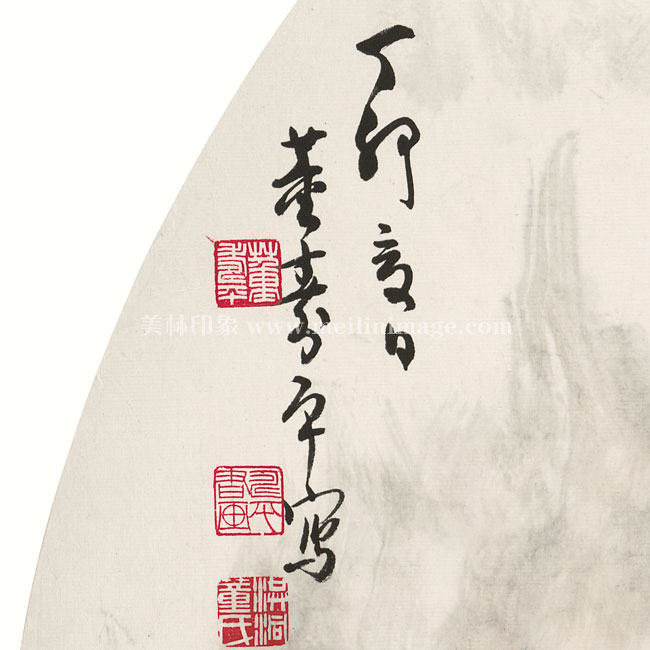 丁卯夏日
董寿平写
董壽平
洪洞董氏
美林印象 www.meilinimage.com